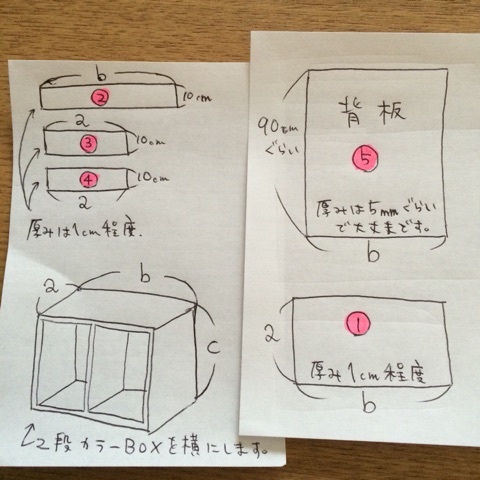 b
② 10cm
a
③ 10cm
④ 10cm
a
厚みは1cm程度.
a b
c
2段カラーBOXを横にします。
90cm
ぐらい
背板
⑤
厚みは5mmぐらい
で大丈夫です。
b
①
a
厚み1cm程度
b